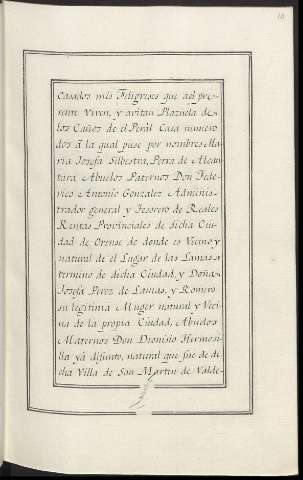 10
Casados mis Feligreses que al pre-
sente Viven, y avitan Plazuela de
los Caños de el Perál Casa numero
dos à la qual puse por nombres Ma
ria Josefa Silbestra, Petra de Alcan
tara Abuelos Paternos Don Fede-
rico Antonio Gonzalez Adminis-
trador general y Tesorero de Reales
Rentas Provinciales de dicha Ciu-
dad de Orense de donde es Vecino y
natural de el Lugar de las Lamas
termino de dicha Ciudad, y Doña
Josefa Perez de Lamas, y Romero
su legitima Muger natural y Veci-
na de la propia Ciudad, Abuelos
Maternos Don Dionisio Hermosi-
lla yá difunto, natural que fue de di
cha Villa de San Martin de Valde-